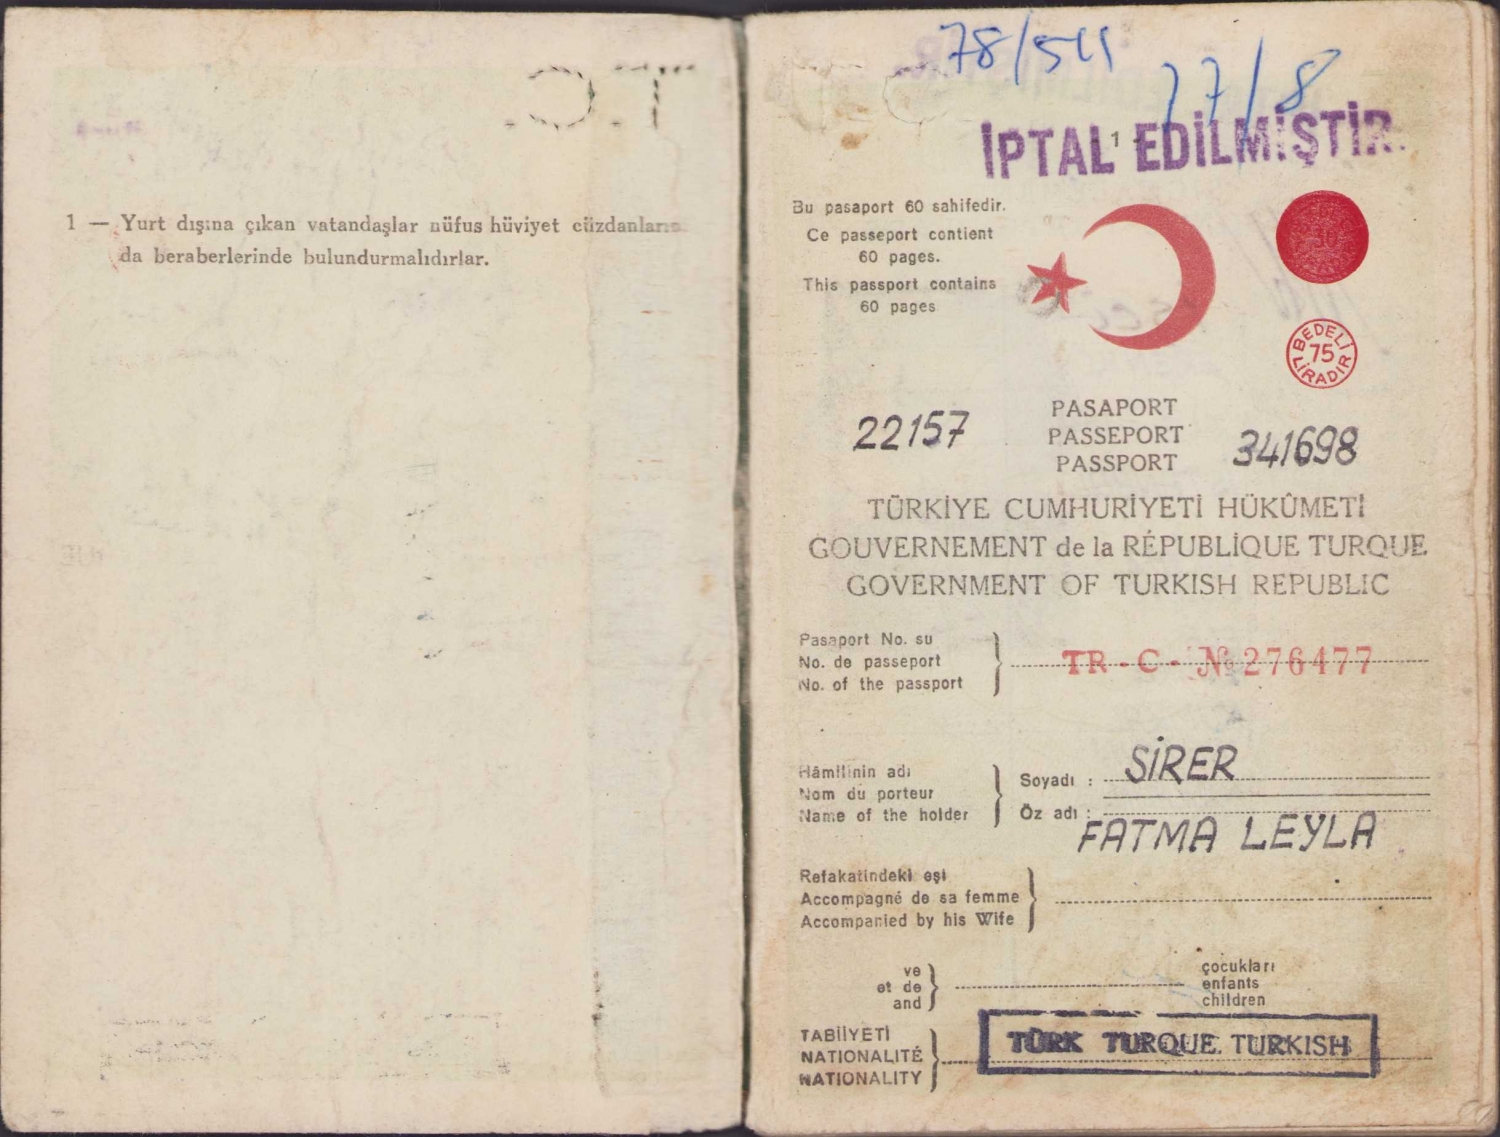 1 — Yurt dışına çıkan vatandaşlar nüfus hüviyet cüzdanlarını
da beraberlerinde bulundurmalıdırlar.
78/511
27/8
İPTAL EDİLMİŞTİR.
1
Bu pasaport 60 sahifedir.
Ce passeport contient
60 pages.
This passport contains
60 pages
BEDELİ
75
LİRADIR
22157
PASAPORT
PASSEPORT
PASSPORT
341698
TÜRKİYE CUMHURİYETİ HÜKÛMETİ
GOUVERNEMENT de la RÉPUBLİQUE TURQUE
GOVERNMENT OF TURKISH REPUBLIC
Pasaport No. su
No. de passeport
No. of the passport
TR - C - № 276477
Hâmilinin adı
Nom du porteur
Name of the holder
Soyadı : SİRER
Öz adı : FATMA LEYLA
Refakatindeki eşi
Accompagné de sa femme
Accompanied by his Wife
ve
et de
and
çocukları
enfants
children
TABİİYETİ
NATIONALITÉ
NATIONALITY
TÜRK TURQUE. TURKISH